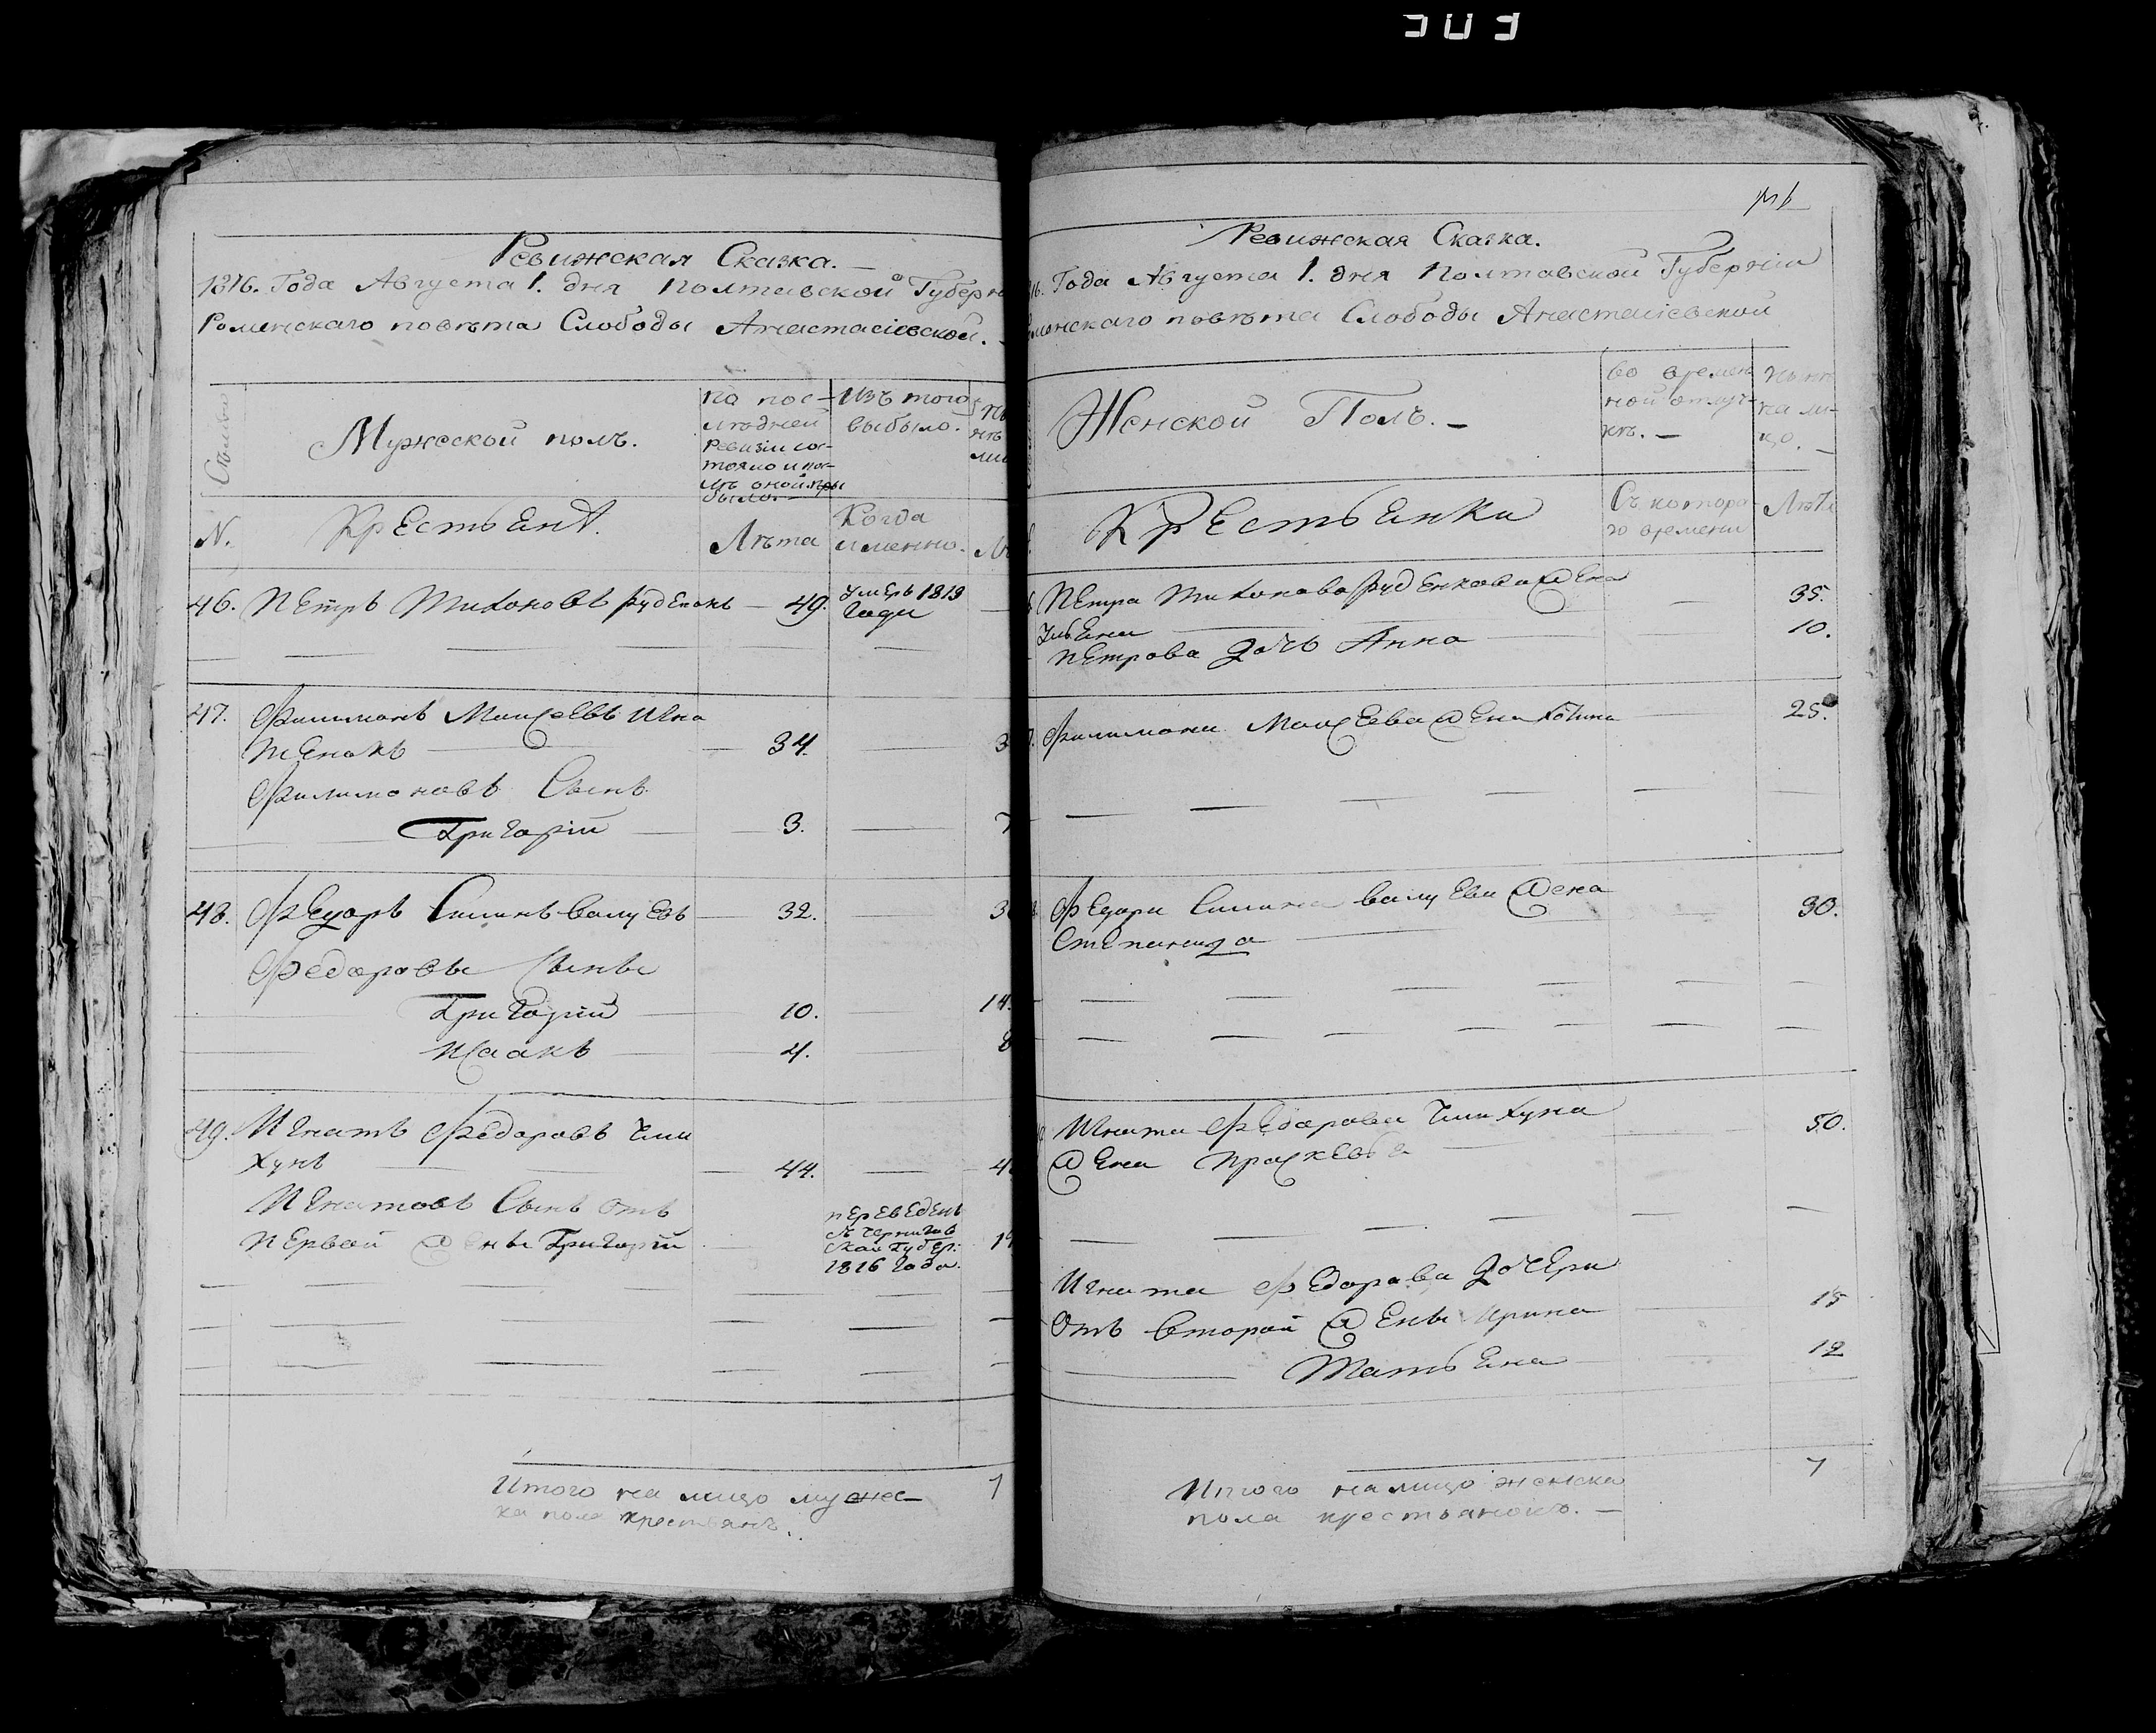 303
Ревижская Сказка.
1816. Года Августа 1. дня Полтавской Губерн
Роменскаго повѣта Слободы Анастасіевской.
Мужеской полъ.
по пос-
лѣдней
ревизіи сос-
тояло и пос-
лѣ оной при
было.
Изъ того
выбыло.
N.
КрЕстьЕнА.
Лѣта
Когда
именно.
46. ПЕтръ Тихоновъ рудЕнокъ — 49.
умЕръ 1813
Года
47. Филимонъ МоисЕЕвъ Игна
тЕнокъ — 34.
Филимоновъ Сынъ
Григорій — 3.
48. ФЕдоръ Силинъ ВалуЕвъ — 32.
Федоровы Сыны
Григорій — 10. 14.
ИСаакъ — 4. 8
49. Игнатъ ФЕдоровъ Чми
хунъ — 44.
Игнатовъ Сынъ отъ
пЕрвой жЕны Григорій
пЕрЕвЕдЕнъ
в Чернигов
Скои Губер:
1816 Года.
Итого на лицо мужес-
ка пола крестьянъ. 7
Ревижская Сказка.
16. Года Августа 1. дня Полтавской Губерніи
оменскаго повѣта Слободы Анастасіевской
Женской Полъ.
во времен
ной отлуч-
кѣ.
нынѣ
на ли-
цо.
КрЕстьЕнки
Съ которо
го времени
Лѣта
ПЕтра Тихонова рудЕнкова жЕна 35.
УльЕна
ПЕтрова Дочь Анна 10.
Филимона МоисЕЕва жЕна 25.
ФЕдора Силина ВалуЕва жена 30.
СтЕпанида
Игната ФЕдорова Чмихуна 50.
жЕна ПраСкЕвьЕ
Игната ФЕдорова ДочЕри
Отъ Второй жЕны Ирина 15
ТатьЕна 12
Итого на лицо женска 7
пола крестьянокъ.